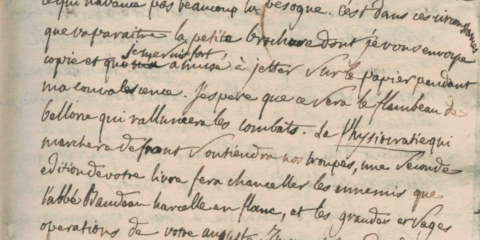 ce qui n'avance pas beaucoup la besogne. C'est dans ces circonstances
que va paraitre la petite brochure dont je vous envoye
copie et que je me suis fort amusé à jetter sur le papier pendant
ma convalescence. J'espere que ce sera le flambeau de
bellone qui rallumera les combats. La Physiocratie qui
marchera de front soutiendra nos troupes, une seconde
edition de votre livre fera chanceller les ennemis que
l'abbé Baudeau harcelle en flanc, et les grandes et sages
operations de votre auguste